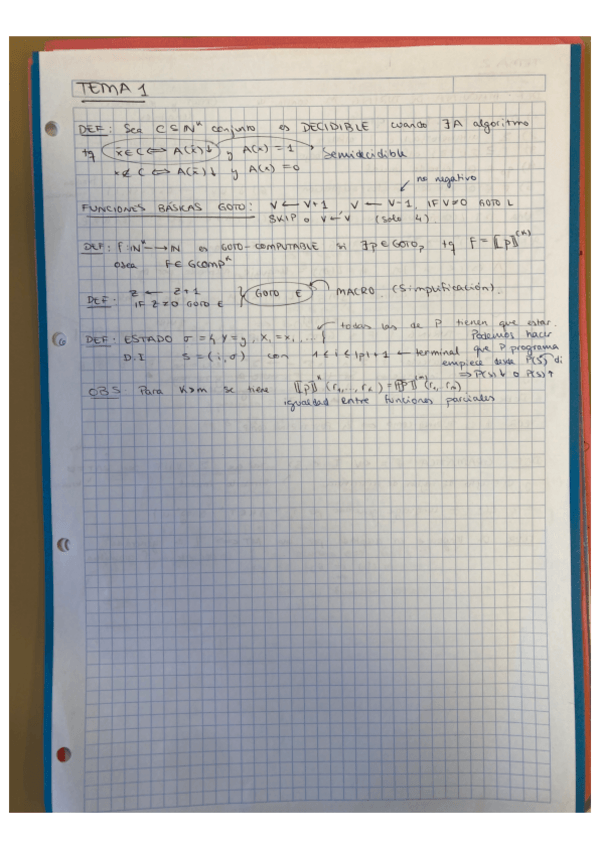 TEMA 1
DEF: Sea C ⊆ ℕᵏ conjunto es DECIDIBLE cuando ∃A algoritmo
tq x̄ ∈ C ⟺ A(x̄)↓ y A(x) = 1 Semidecidible
x ∉ C ⟺ A(x̄)↓ y A(x) = 0
no negativo
FUNCIONES BÁSICAS GOTO: V ← V+1, V ← V-1, IF V≠0 GOTO L
SKIP o V ← V (Solo 4)
DEF: F: ℕᵏ → ℕ es GOTO-COMPUTABLE si ∃p ∈ GOTOₚ tq F = ⟦p⟧⁽ᵏ⁾
osea F ∈ GCOMPᵏ
Z ← Z+1
DEF: IF Z≠0 GOTO E } GOTO E MACRO (Simplificación).
todas las de P tienen que estar.
DEF: ESTADO σ = { Y = y, X₁ = x₁, ... } Podemos hacer
D.I S = (i, σ) con 1 ≤ i ≤ |p|+1 ← terminal que P programa
empiece P(s) di
⇒ P(s)↓ o P(s)↑
OBS Para K>m se tiene ⟦p⟧ᵏ(r₁,..., rₖ) = ⟦p⟧⁽ᵐ⁾(r₁, rₖ)
igualdad entre funciones parciales